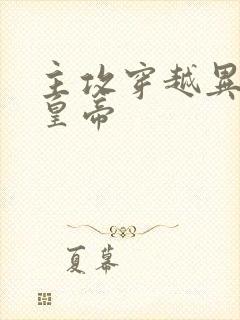 主攻穿越異
皇帝
夏幕